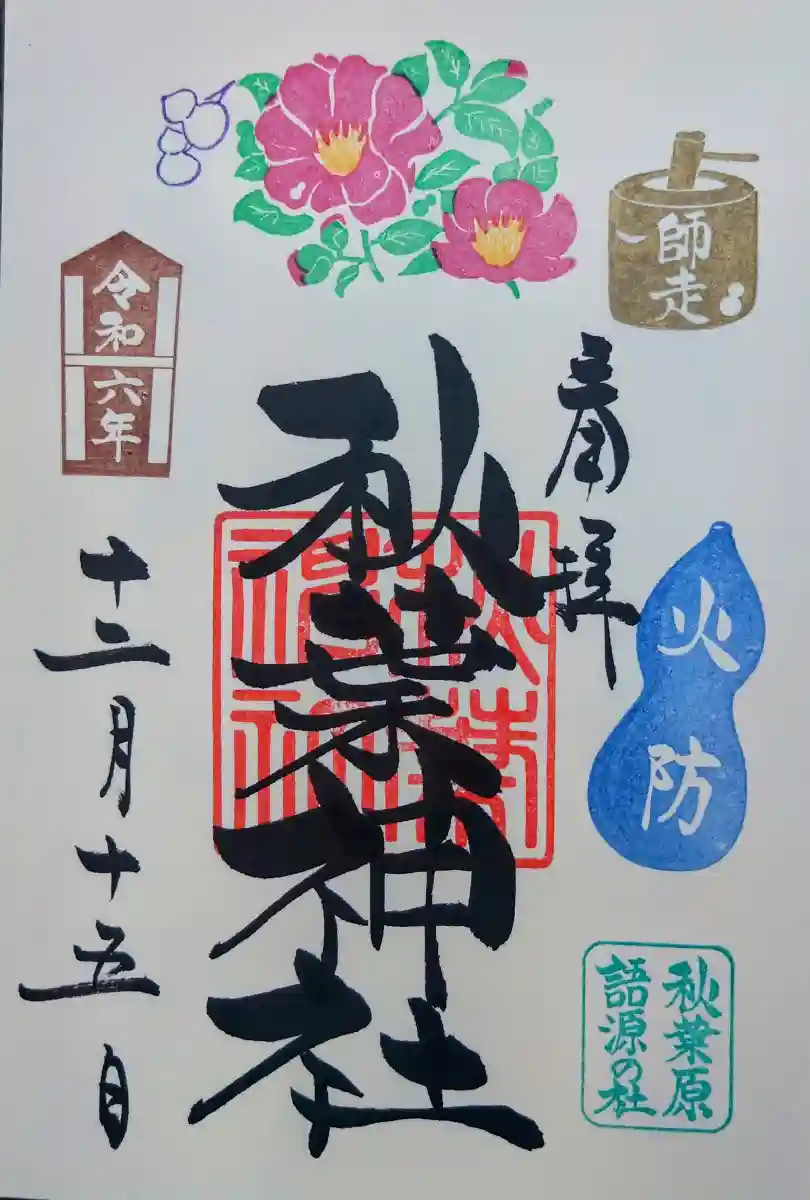 師走
奉拝
火防
秋葉原
語源の社
秋葉神社
令和六年
十二月十五日